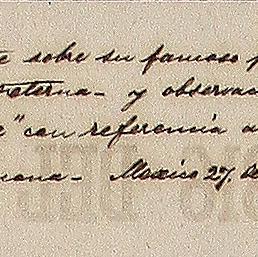 te sobre su famoso
eterna - y observac
" con referencia a
mana - Mexico 27, de